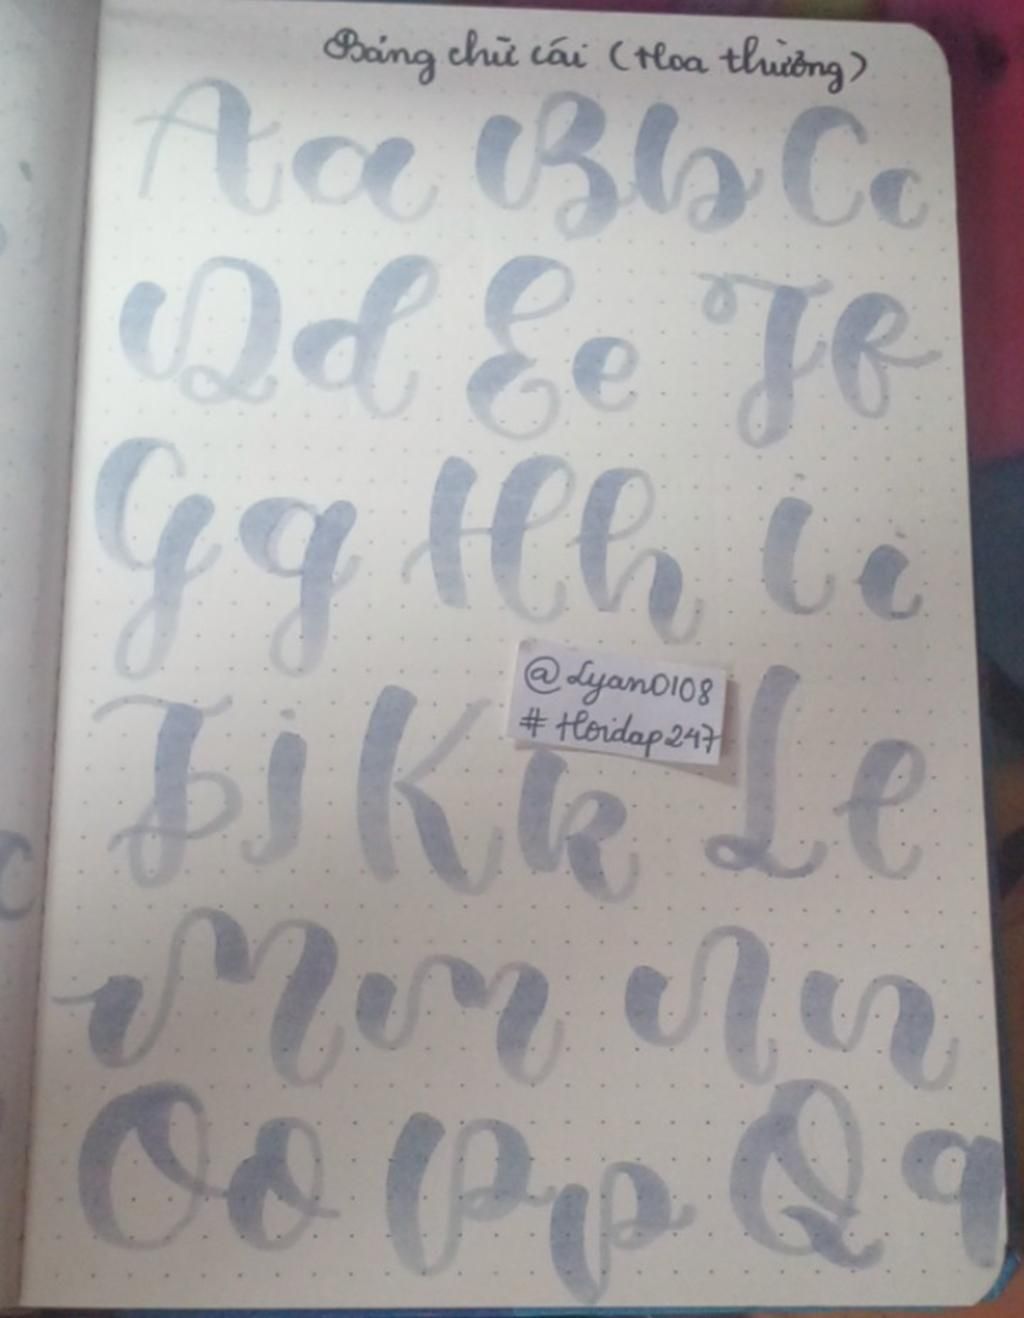 Bảng chữ cái (Hoa thường)
Aa Bb Cc
Dd Ee Ff
Gg Hh Ii
@Lyan0108
# Hoidap247
Jj Kk Ll
Mm Nn
Oo Pp Qq